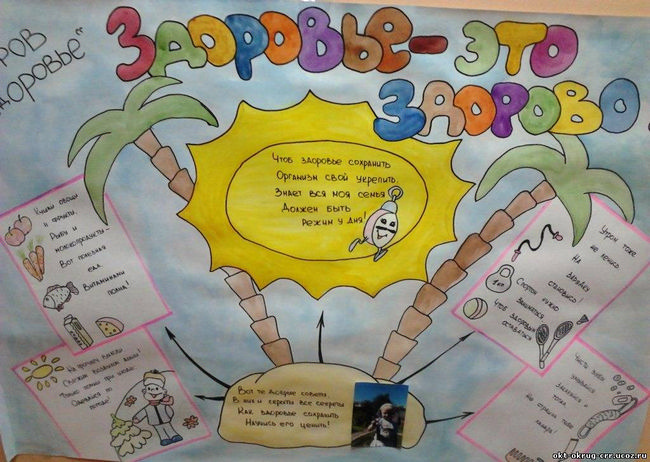 РОВ
ДОРОВЬЕ"
ЗДОРОВЬЕ- ЭТО
ЗДОРОВО
Чтоб здоровье сохранить
Организм свой укрепить,
Знает вся моя семья
Должен быть
Режим у дня!
Кушай овощи
и фрукты,
Рыбу и
молокопродукты-
Вот полезная
еда
Витаминами
полна!
На прогулку выходи
Свежим воздухом дыши!
Только помни при уходе:
Одевайся по
погоде!
Вот те добрые советы,
В них и скрыты все секреты
Как здоровье сохранить
Научись его ценить!
Утром тоже
не ленись
На зарядку
становись!
Спортом нужно
заниматься
Чтоб здоровым
оставаться
Чисть зубы
умывайся
и
тогда
Не страшна тебе
хвора!
okt-okrug-crr.ucoz.ru